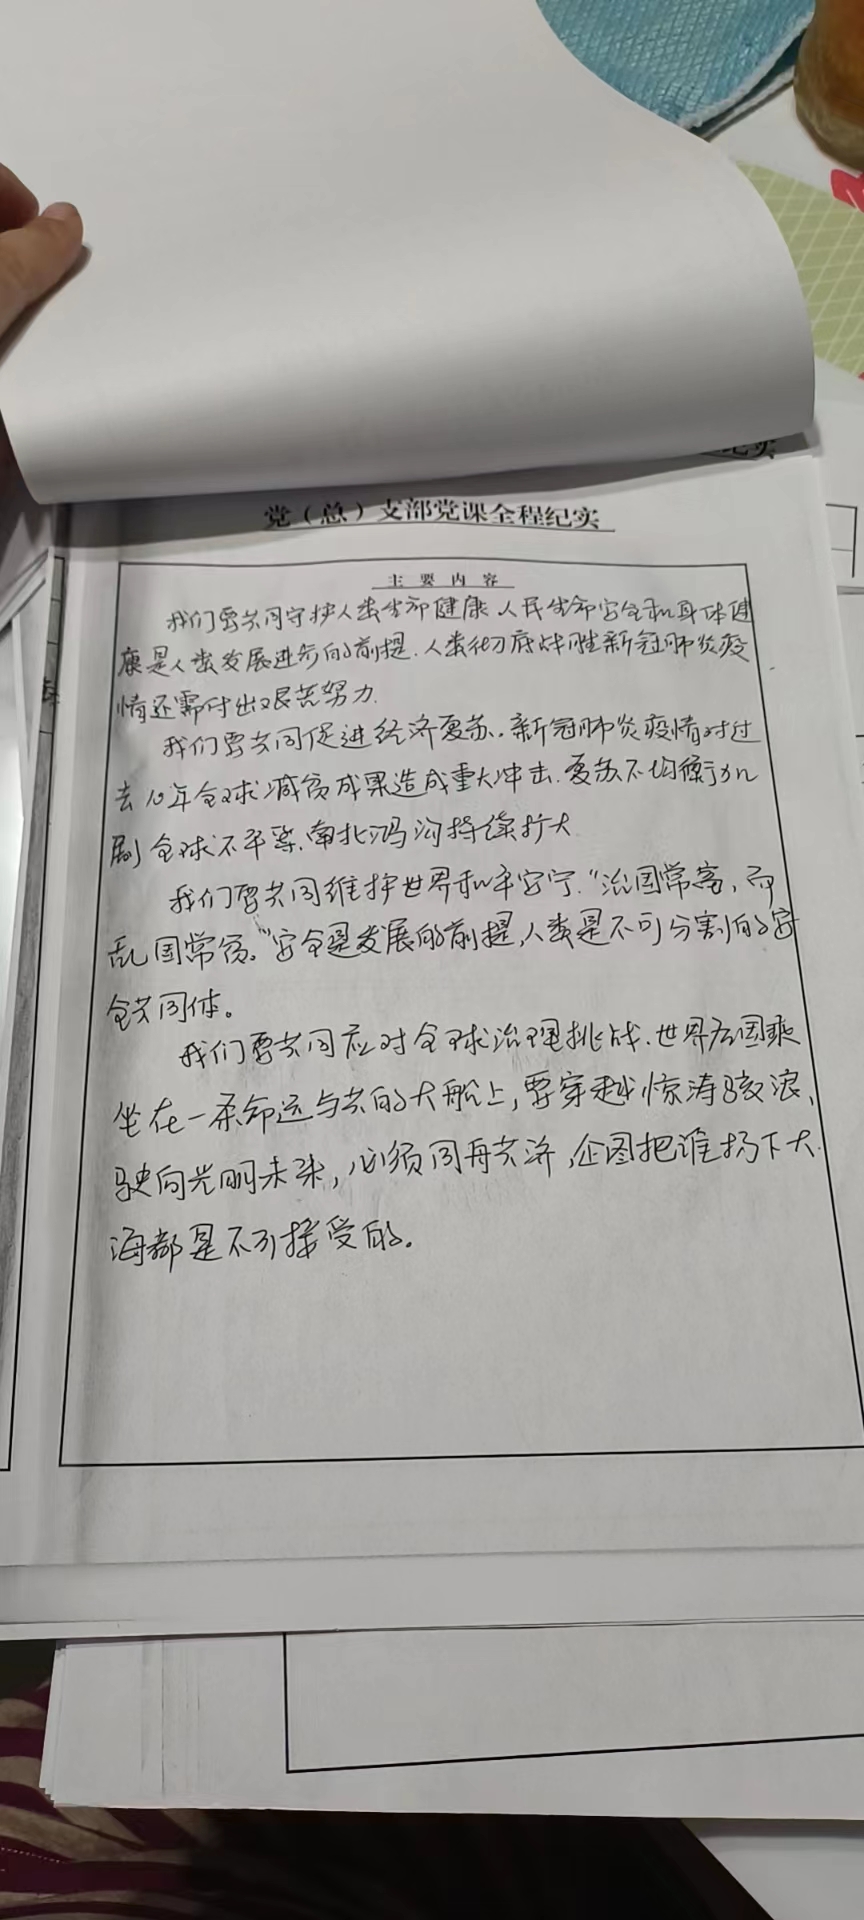 纪实
党（总）支部党课全程纪实
主要内容
我们要共同守护人类生命健康.人民生命安全和身体健
康是人类发展进步的前提.人类彻底战胜新冠肺炎疫
情还需付出艰苦努力.
我们要共同促进经济复苏.新冠肺炎疫情对过
去10年全球减贫成果造成重大冲击.复苏不均衡加
剧全球不平等.南北鸿沟持续扩大
我们要共同维护世界和平安宁.“治国常富，而
乱国常贫。”安全是发展的前提,人类是不可分割的安
全共同体。
我们要共同应对全球治理挑战.世界各国乘
坐在一条命运与共的大船上,要穿越惊涛骇浪、
驶向光明未来,必须同舟共济,企图把谁扔下大
海都是不可接受的.